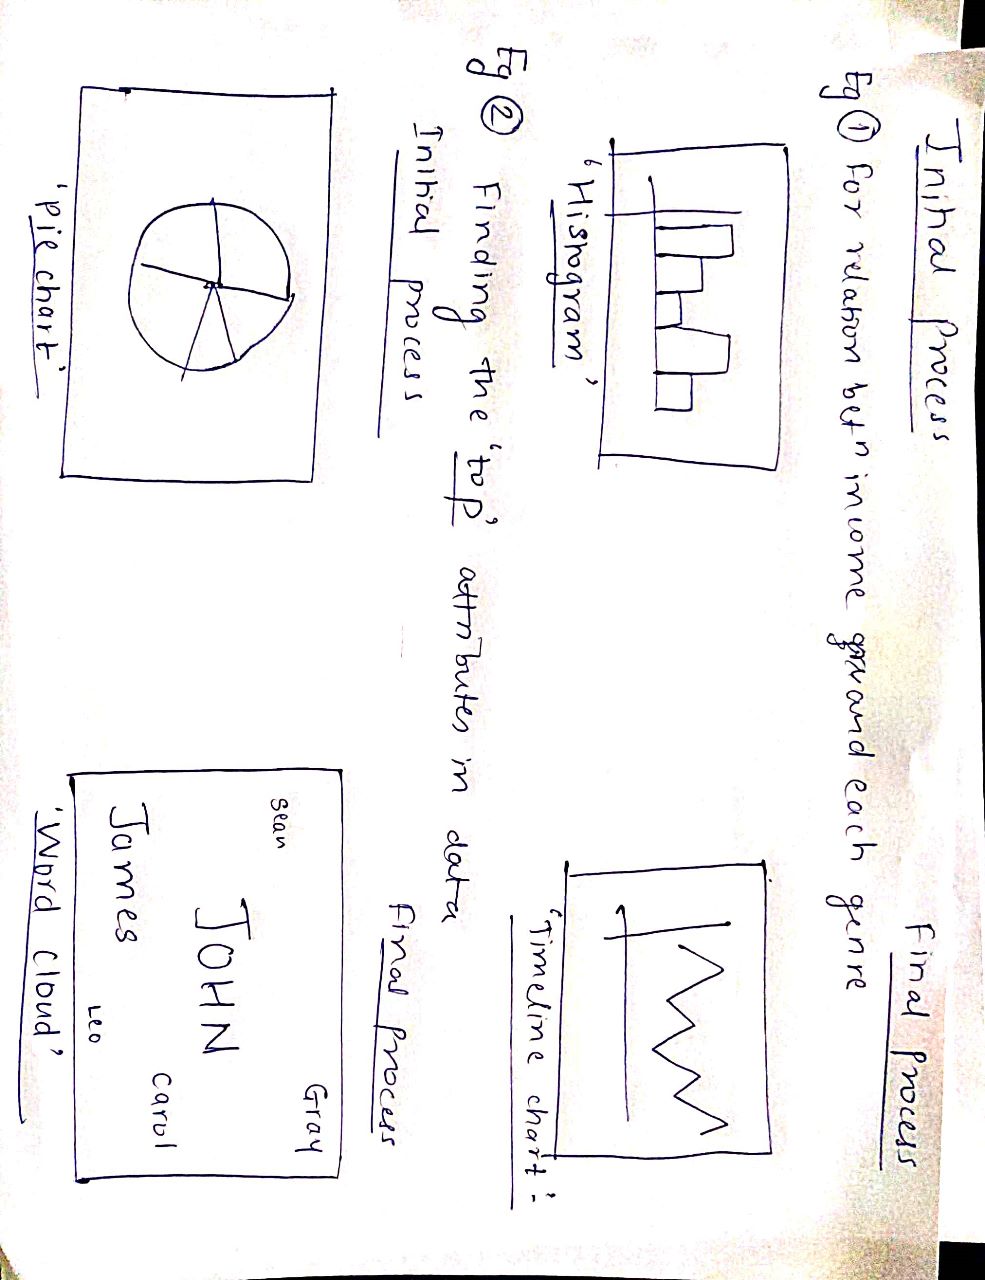 Initial process
Final process
Eg ① For relation betn income and each genre
'Histogram'
'Timeline chart'
Eg ② Finding the 'top' attributes in data
Initial process
Final process
Gray
Sean
JOHN
Carol
James
Leo
'Pie chart'
'Word cloud'